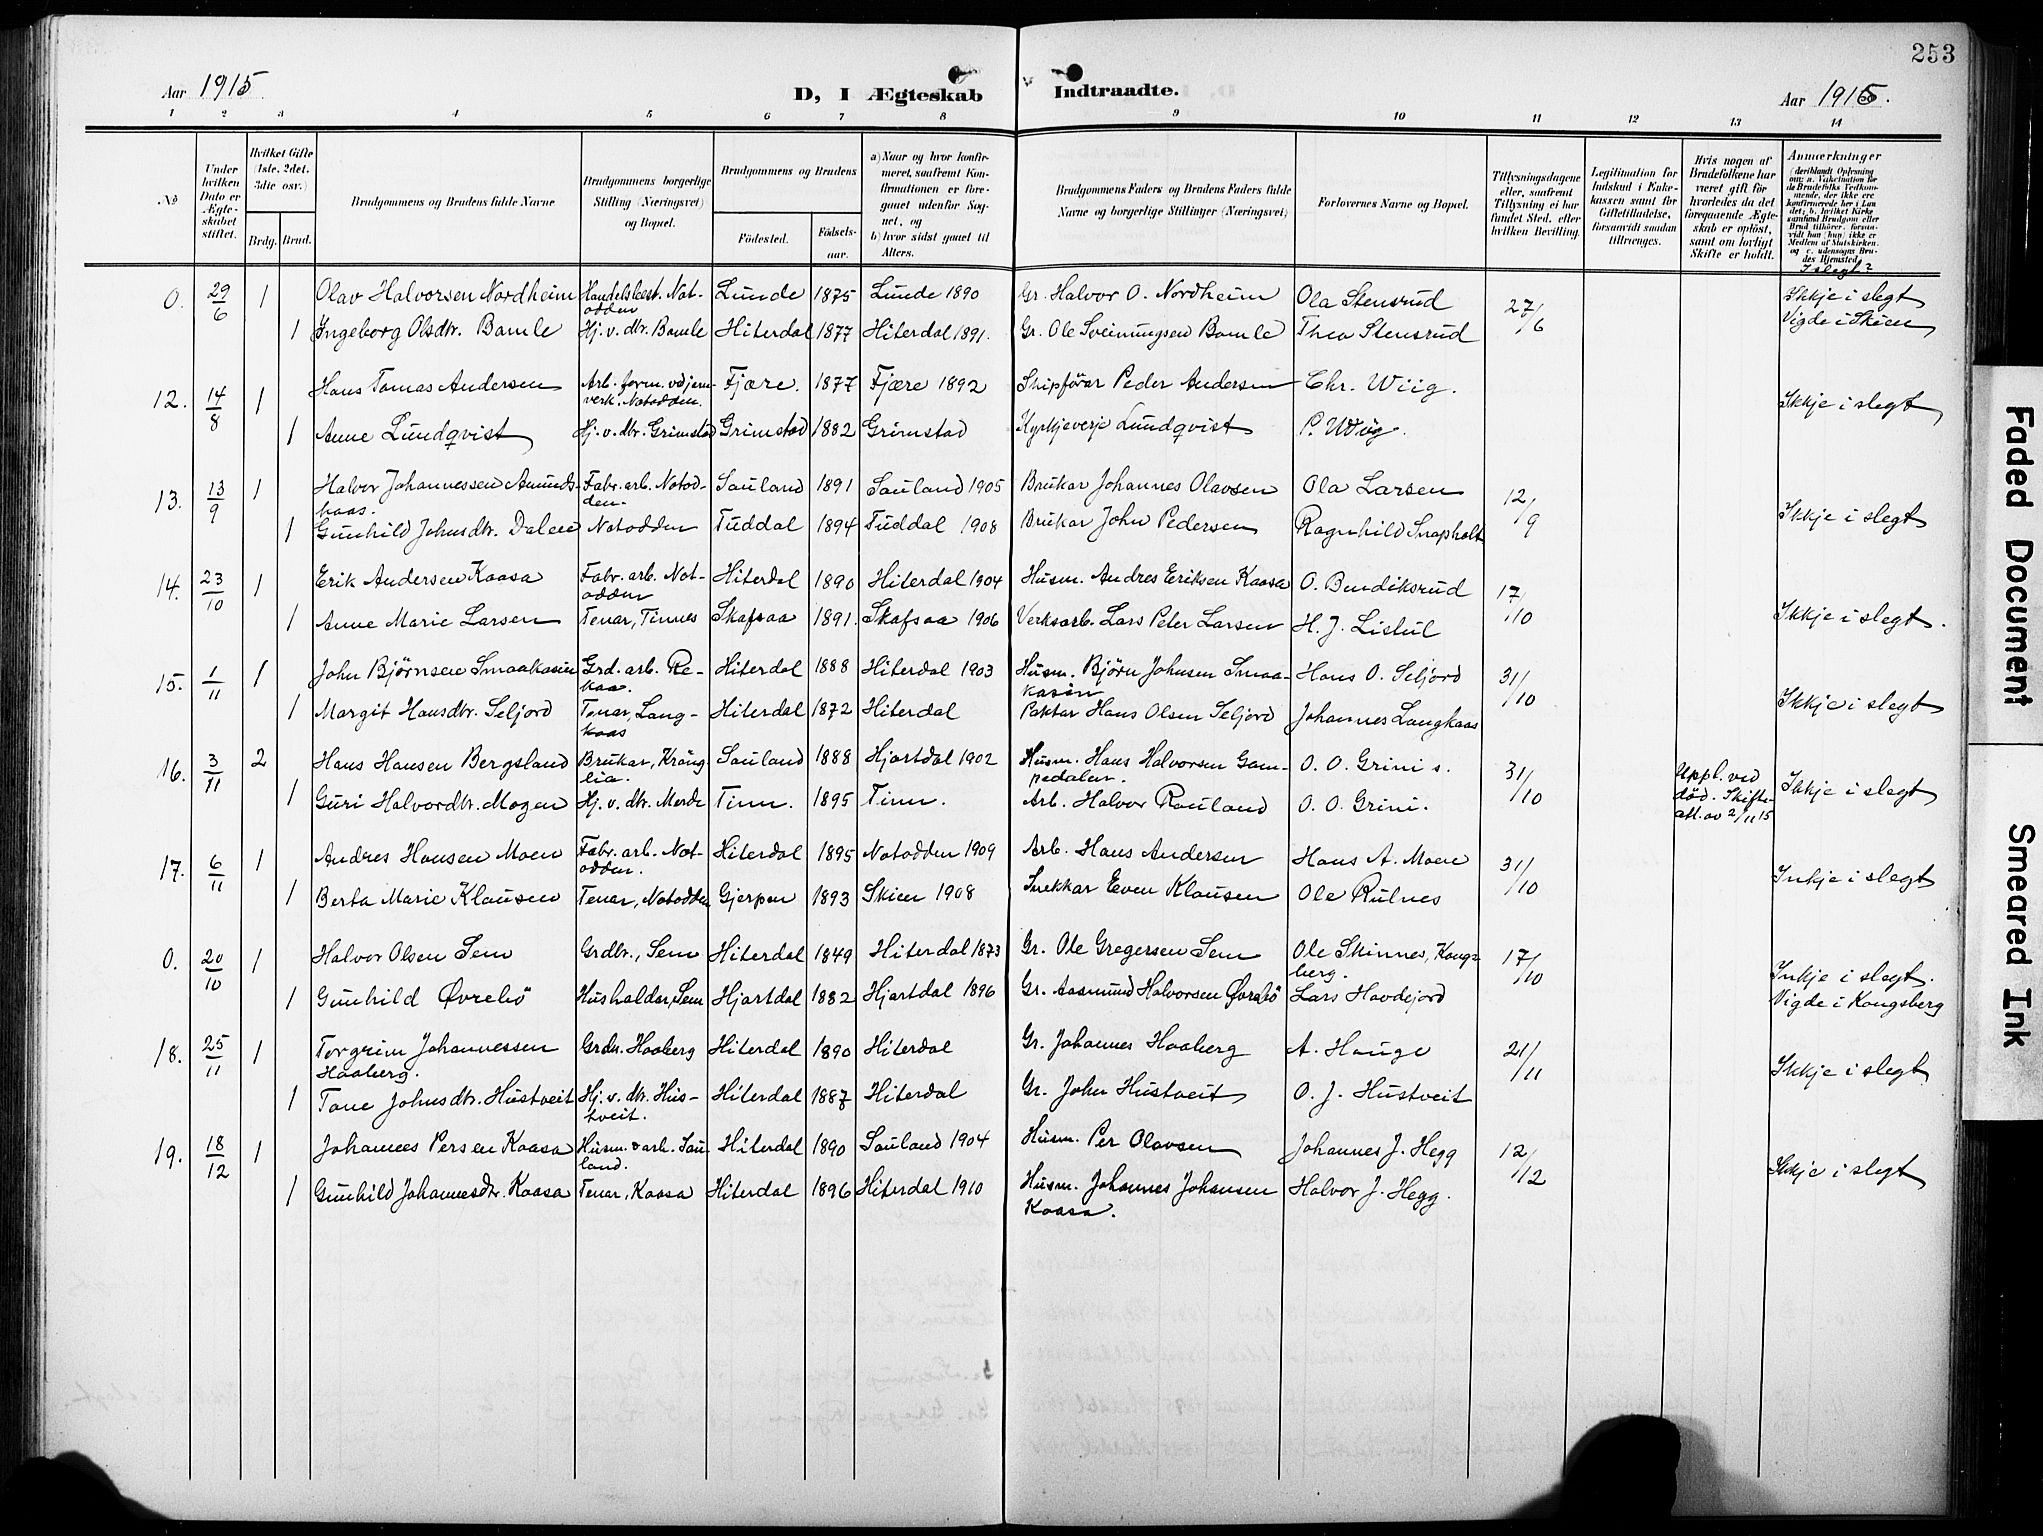 253
Aar 1915
D, I Ægteskab Indtraadte.
Aar 1915.
1 2 3 4 5 6 7 8 9 10 11 12 13 14
No
Under hvilken Dato er Ægteskabet stiftet.
Hvilket Gifte (1ste, 2det, 3die osv.)
Brdg. Brud.
Brudgommens og Brudens fulde Navne
Brudgommens borgerlige Stilling (Næringsvei) og Bopæl.
Brudgommens og Brudens
Fødested. Fødselsaar.
a) Naar og hvor konfirmeret, saafremt Konfirmationen er foregaaet udenfor Sognet, og
b) hvor sidst gaaet til Alters.
Brudgommens Faders og Brudens Faders fulde Navne og borgerlige Stillinger (Næringsvei)
Forlovernes Navne og Bopæl.
Tillysningsdagene eller, saafremt Tillysning ei har fundet Sted, efter hvilken Bevilling.
Legitimation for Indskud i Enkekassen samt for Giftetilladelse, forsaavidt saadan tiltrænges.
Hvis nogen af Brudefolkene har været gift før hvorledes da det foregaaende Ægteskab er opløst, samt om lovligt Skifte er holdt.
Anmærkninger
I slegt?
0. 29/6 1 Olav Halvorsen Nordheim Handelsbest. Notodden Lunde 1875 Lunde 1890 Gr. Halvor O. Nordheim Ola Stensrud 27/6 Ikkje i slegt
1 Ingeborg Olsdtr. Bamle Hj. v. dtr. Bamle Hiterdal 1877 Hiterdal 1891. Gr. Ole Sveinungsen Bamle Thea Stensrud Vigde i Skien
12. 14/8 1 Hans Tomas Andersen Arb. form. v djernverk. Notodden. Fjære. 1877 Fjære 1892 Skipförar Peder Andersen Chr. Wiig. Ikkje i slegt
1 Anne Lundqvist Hj. v. dtr. Grimstad Grimstad 1882 Grimstad Kyrkjeverje Lundqvist P. Wiig.
13. 13/9 1 Halvor Johannessen Amundskaas. Fabr. arb. Notodden. Sauland 1891 Sauland 1905 Brukar Johannes Olavsen Ola Larsen 12/9 Ikkje i slegt
1 Gunhild Johnsdtr. Dalen Notodden Tuddal 1894 Tuddal 1908 Brukar John Pedersen Ragnhild Snapholt
14. 23/10 1 Erik Andersen Kaasa Fabr. arb. Notodden Hiterdal 1890 Hiterdal 1904 Husm. Andres Eriksen Kaasa O. Bendiksrud 17/10 Ikkje i slegt.
1 Anne Marie Larsen Tenar, Tinnes Skafsaa 1891. Skafsaa 1906 Verksarb. Lars Peter Larsen H. J. Listul
15. 1/11 1 John Bjørnsen Smaakasin Grd. arb. Rekaa. Hiterdal 1888 Hiterdal 1903 Husm. Bjørn Johnsen Smaakasin Hans O. Seljord 31/10 Ikkje i slegt
1 Margit Hansdtr. Seljord Tenar, Langkaas Hiterdal 1872 Hiterdal Paktar Hans Olsen Seljord Johannes Langkaas
16. 3/11 2 Hans Hansen Bergsland Brukar, Kränglia. Sauland 1888 Hjartdal 1902 Husm. Hans Halvorsen Gampedalen. O. O. Grini s. 31/10 Uppl. ved død. Skifteatt. av 2/11 15 Ikkje i slegt
1 Guri Halvordtr. Mogen Hj. v. dtr. Merde Tinn. 1895 Tinn. Arb. Halvor Rauland O. O. Grini.
17. 6/11 1 Andres Hansen Moen Fabr. arb. Notodden. Hiterdal 1895 Notodden 1909 Arb. Hans Andersen Hans A. Moen 31/10 Inkje i slegt
1 Berta Marie Klausen Tenar, Notodden Gjerpen 1893 Skien 1908 Snekkar Even Klausen Ole Rulnes
0. 20/10 1 Halvor Olsen Sem Grdbr., Sem Hiterdal 1849 Hiterdal 1873 Gr. Ole Gregersen Sem Ole Skinnes, Kongsberg. 17/10 Inkje i slegt.
1 Gunhild Øvrebö Husholder, Sem Hjartdal 1882 Hjartdal 1896 Gr. Aasmund Halvorsen Øvrebö Lars Hovdejord Vigde i Kongsberg
18. 25/11 1 Torgrim Johannessen Haaberg. Grdr. Haaberg Hiterdal 1890 Hiterdal Gr. Johannes Haaberg A. Hauge 21/11 Ikkje i slegt
1 Tone Johnsdtr. Hustveit Hj. v. dtr. Hustveit. Hiterdal 1887 Hiterdal Gr. John Hustveit O. J. Hustveit
19. 18/12 1 Johannes Persen Kaasa Husm. & arb. Sauland. Hiterdal 1890 Sauland 1904 Husm. Per Olavsen Johannes J. Hegg 12/12 Ikkje i slegt
1 Gunhild Johannesdtr. Kaasa Tenar, Kaasa Hiterdal 1896 Hiterdal 1910 Husm. Johannes Johansen Kaasa. Halvor J. Hegg.
Faded Document
Smeared Ink